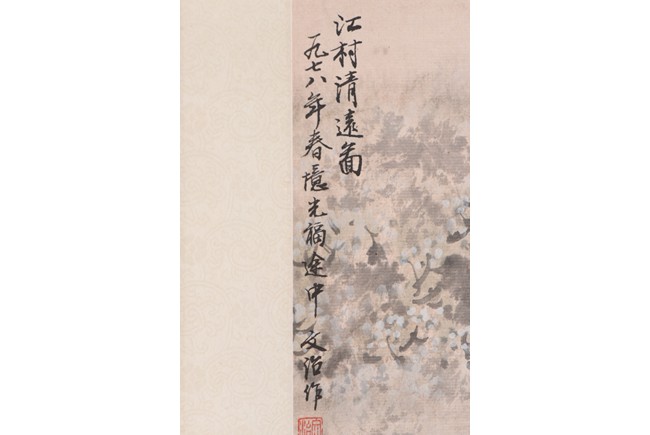 江村清遠啚
一九七八年春憶光福途中 文治作